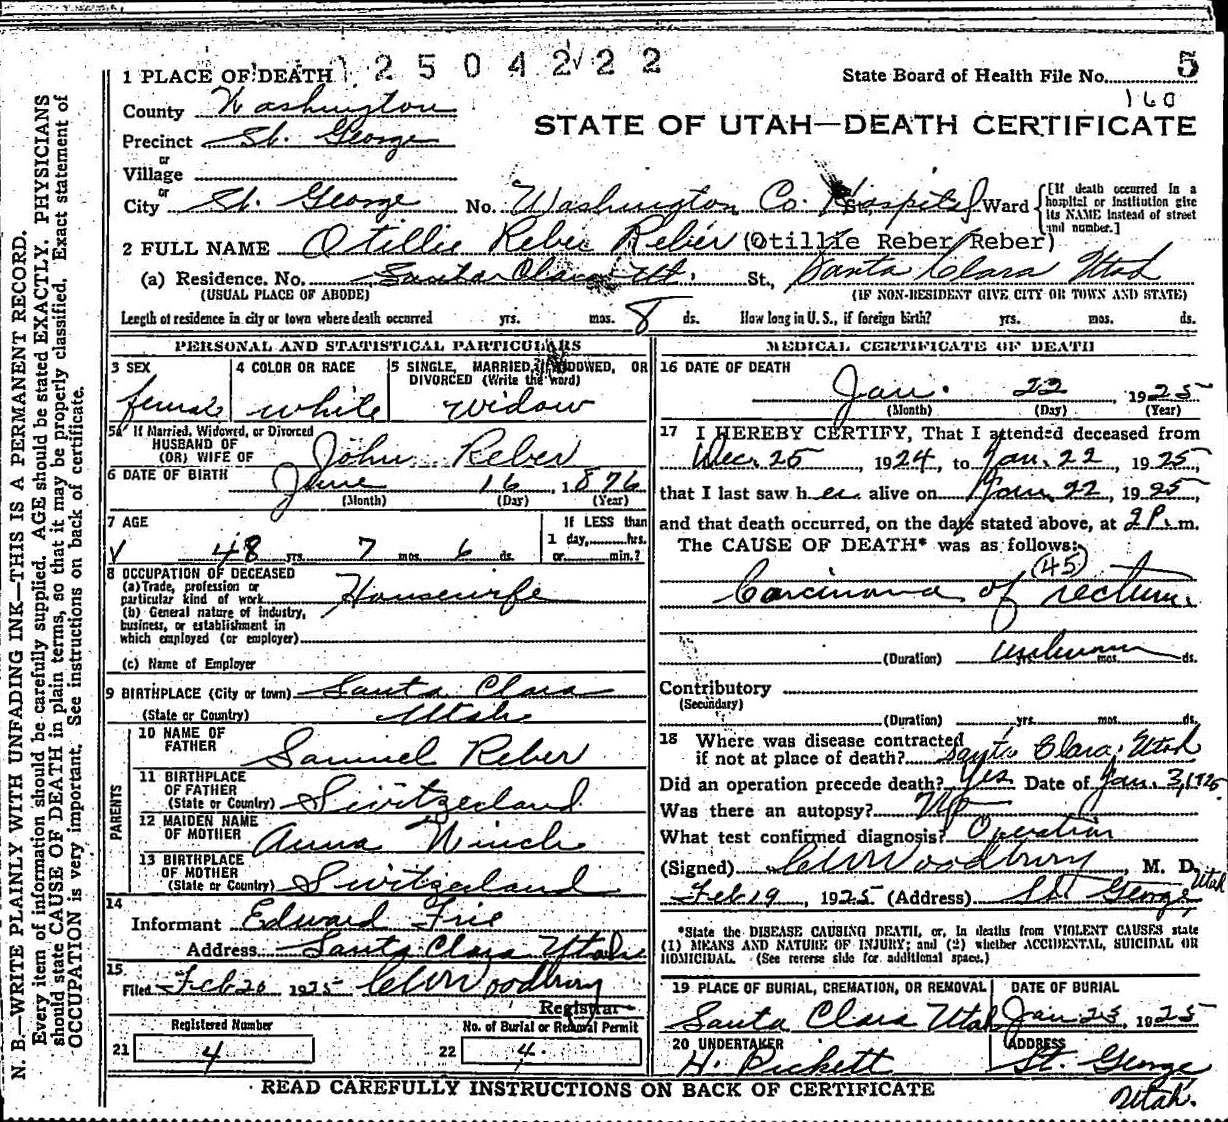 2504222
1 PLACE OF DEATH
State Board of Health File No. 5
160
County Washington
STATE OF UTAH—DEATH CERTIFICATE
Precinct St. George
or
Village
or
City St. George No. Washington Co. Hospital St. Ward [If death occurred in a hospital or institution give its NAME instead of street and number.]
2 FULL NAME Otillie Reber Reber (Otillie Reber Reber)
(a) Residence. No. Santa Clara Ut. St., Santa Clara Utah
(USUAL PLACE OF ABODE) (IF NON-RESIDENT GIVE CITY OR TOWN AND STATE)
Length of residence in city or town where death occurred yrs. mos. 8 ds. How long in U. S., if foreign birth? yrs. mos. ds.
PERSONAL AND STATISTICAL PARTICULARS
3 SEX
female
4 COLOR OR RACE
white
5 SINGLE, MARRIED, WIDOWED, OR DIVORCED (Write the word)
widow
5a If Married, Widowed, or Divorced
HUSBAND OF
(OR) WIFE OF John Reber
6 DATE OF BIRTH June 16, 1876
(Month) (Day) (Year)
7 AGE
48 yrs. 7 mos. 6 ds.
If LESS than
1 day, hrs.
or min.?
8 OCCUPATION OF DECEASED
(a) Trade, profession or
particular kind of work Housewife
(b) General nature of industry,
business, or establishment in
which employed (or employer)
(c) Name of Employer
9 BIRTHPLACE (City or town) Santa Clara
(State or Country) Utah
PARENTS
10 NAME OF
FATHER Samuel Reber
11 BIRTHPLACE
OF FATHER
(State or Country) Switzerland
12 MAIDEN NAME
OF MOTHER Anna Winch
13 BIRTHPLACE
OF MOTHER
(State or Country) Switzerland
14
Informant Edward Frie
Address Santa Clara Utah
15
Filed Feb 20 1925 Woodbury
Registrar
Registered Number
21 4
No. of Burial or Removal Permit
22 4
MEDICAL CERTIFICATE OF DEATH
16 DATE OF DEATH
Jan. 22 1925
(Month) (Day) (Year)
17 I HEREBY CERTIFY, That I attended deceased from
Dec. 25, 1924, to Jan. 22, 1925,
that I last saw her alive on Jan. 22, 1925,
and that death occurred, on the date stated above, at 2 P. m.
The CAUSE OF DEATH* was as follows:
(45)
Carcinoma of rectum.
(Duration) unknown yrs. mos. ds.
Contributory
(Secondary)
(Duration) yrs. mos. ds.
18 Where was disease contracted
if not at place of death? Santa Clara, Utah
Did an operation precede death? Yes Date of Jan. 3, 1925
Was there an autopsy? No
What test confirmed diagnosis? Operation
(Signed) Woodbury M. D.
Feb 19, 1925 (Address) St. George, Utah
*State the DISEASE CAUSING DEATH, or, in deaths from VIOLENT CAUSES state
(1) MEANS AND NATURE OF INJURY; and (2) whether ACCIDENTAL, SUICIDAL OR
HOMICIDAL. (See reverse side for additional space.)
19 PLACE OF BURIAL, CREMATION, OR REMOVAL
Santa Clara Utah
DATE OF BURIAL
Jan 23, 1925
20 UNDERTAKER
H. Pickett
ADDRESS
St. George
Utah.
READ CAREFULLY INSTRUCTIONS ON BACK OF CERTIFICATE
N. B.—WRITE PLAINLY WITH UNFADING INK—THIS IS A PERMANENT RECORD.
Every item of information should be carefully supplied. AGE should be stated EXACTLY. PHYSICIANS
should state CAUSE OF DEATH in plain terms, so that it may be properly classified. Exact statement of
OCCUPATION is very important. See instructions on back of certificate.